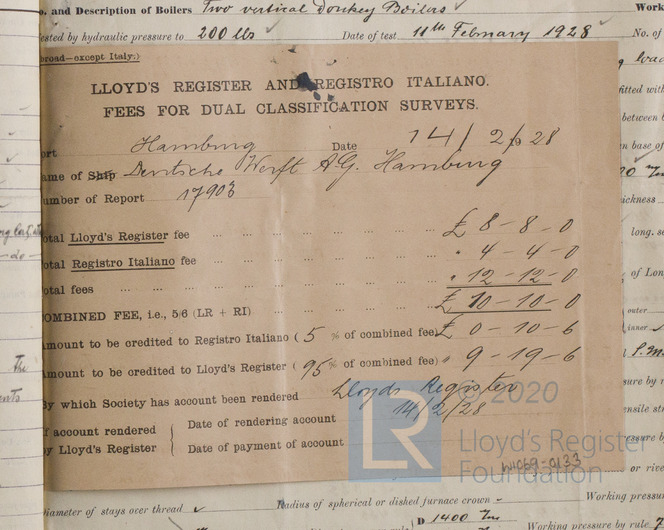 o. and Description of Boilers Two vertical Donkey Boilers
ested by hydraulic pressure to 200 lbs Date of test 11th February 1928 No. of
broad—except Italy.)
LLOYD'S REGISTER AND REGISTRO ITALIANO.
FEES FOR DUAL CLASSIFICATION SURVEYS.
ort Hamburg Date 14/2/1928
ame of Ship Deutsche Werft A.G. Hamburg
umber of Report 17903
otal Lloyd's Register fee ... £ 8-8-0
otal Registro Italiano fee ... " 4-4-0
otal fees ... " 12-12-0
OMBINED FEE, i.e., 5/6 (LR + RI) £ 10-10-0
mount to be credited to Registro Italiano ( 5 % of combined fee) £ 0-10-6
mount to be credited to Lloyd's Register ( 95 % of combined fee) " 9-19-6
By which Society has account been rendered Lloyds Register
14/2/28
f account rendered Date of rendering account
y Lloyd's Register Date of payment of account
LR © 2020
Lloyd's Register
Foundation
iameter of stays over thread Radius of spherical or dished furnace crown Working pressure
D 1400 Working pressure by rule
Work
fitted with
between b
n base of
ickness
long. se
of Lon
outer
inner
sure by r
ensile stre
or rive
The
ents